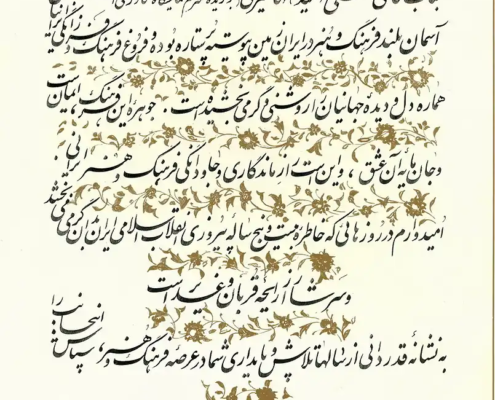 آسمان بلند فرهنگ و هنر در ایران مین پوسته پرستاره بوده و فروغ فرهنگ و فرزانگی ایرانیان
هماره دل و دیده جهانیان را روشنی و گرمی بخشیده است. جوهره این فرهنگ، ایمان است
و جان مایه آن عشق، و این است راز ماندگاری و جاودانگی فرهنگ و هنر ایرانی.
امیدوارم در روزهائی که خاطره بیست و پنج ساله پیروزی انقلاب اسلامی ایران بدان گرمی می بخشد
و سرشار از رایحه قربان و غدیر است
به نشانه قدردانی از سالها تلاش و پایداری شما در عرصه فرهنگ و هنر، سپاس اینجانب را